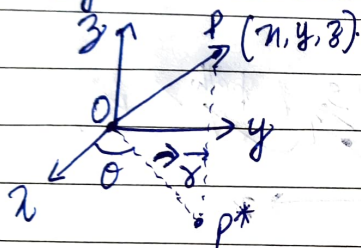 z
P (x, y, z).
O
y
θ
r
x
P*